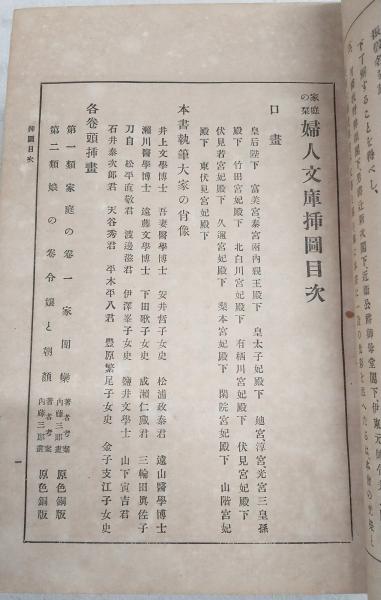 家庭の栞 婦人文庫挿圖目次
口畫
皇后陛下 富美宮泰宮兩內親王殿下 皇太子妃殿下 迪宮淳宮光宮三皇孫
殿下 竹田宮妃殿下 北白川宮妃殿下 有栖川宮妃殿下 伏見宮妃殿下
伏見若宮妃殿下 久邇宮妃殿下 梨本宮妃殿下 閑院宮妃殿下 山階宮妃
殿下 東伏見宮妃殿下
本書執筆大家の肖像
井上文學博士 吾妻醫學博士 安井哲子女史 松浦政泰君 遠山醫學博士
瀨川醫學博士 遠藤文學博士 下田歌子女史 成瀨仁藏君 三輪田眞佐子
刀自 松平直敬君 渡邊滋君 伊澤峯子女史 鹽井文學士 山下寅吉君
石井泰次郎君 天谷秀君 平木平八君 豊原繁尾子女史 金子支江子女史
各卷頭挿畫
第一類 家庭の卷 一家團欒 著者考案 內藤三郎畫 原色銅版
第二類 娘の卷 令孃と朝顏 著者考案 內藤三郎畫 原色銅版
挿圖目次
一